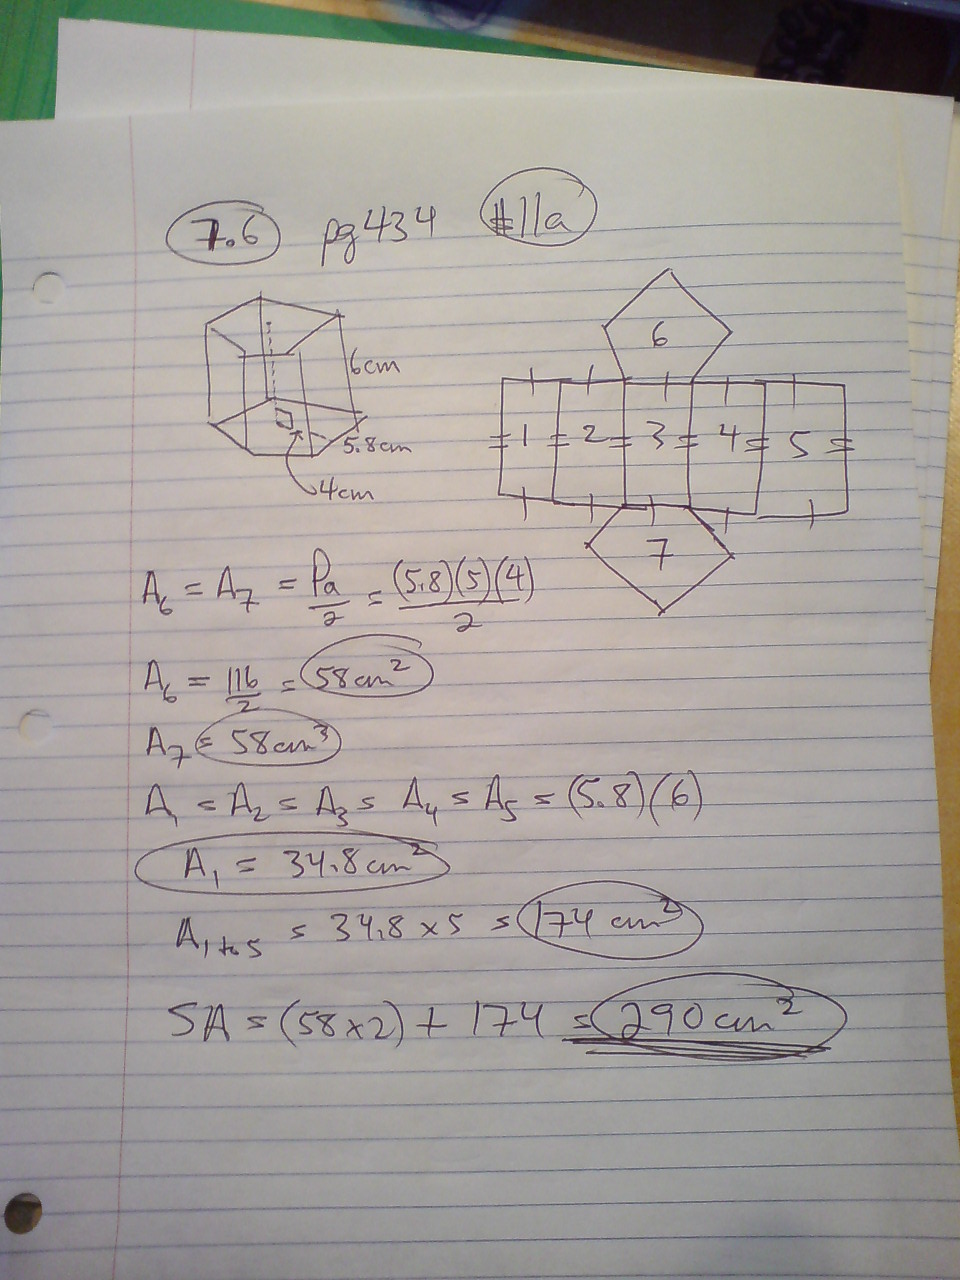 7.6 pg 434 #11a
6cm
5.8cm
4cm
6
1 2 3 4 5
7
A₆ = A₇ = Pa/2 = (5.8)(5)(4)/2
A₆ = 116/2 = 58cm²
A₇ = 58cm³
A₁ = A₂ = A₃ = A₄ = A₅ = (5.8)(6)
A₁ = 34.8cm²
A₁ to 5 = 34.8 × 5 = 174 cm²
SA = (58×2) + 174 = 290cm²